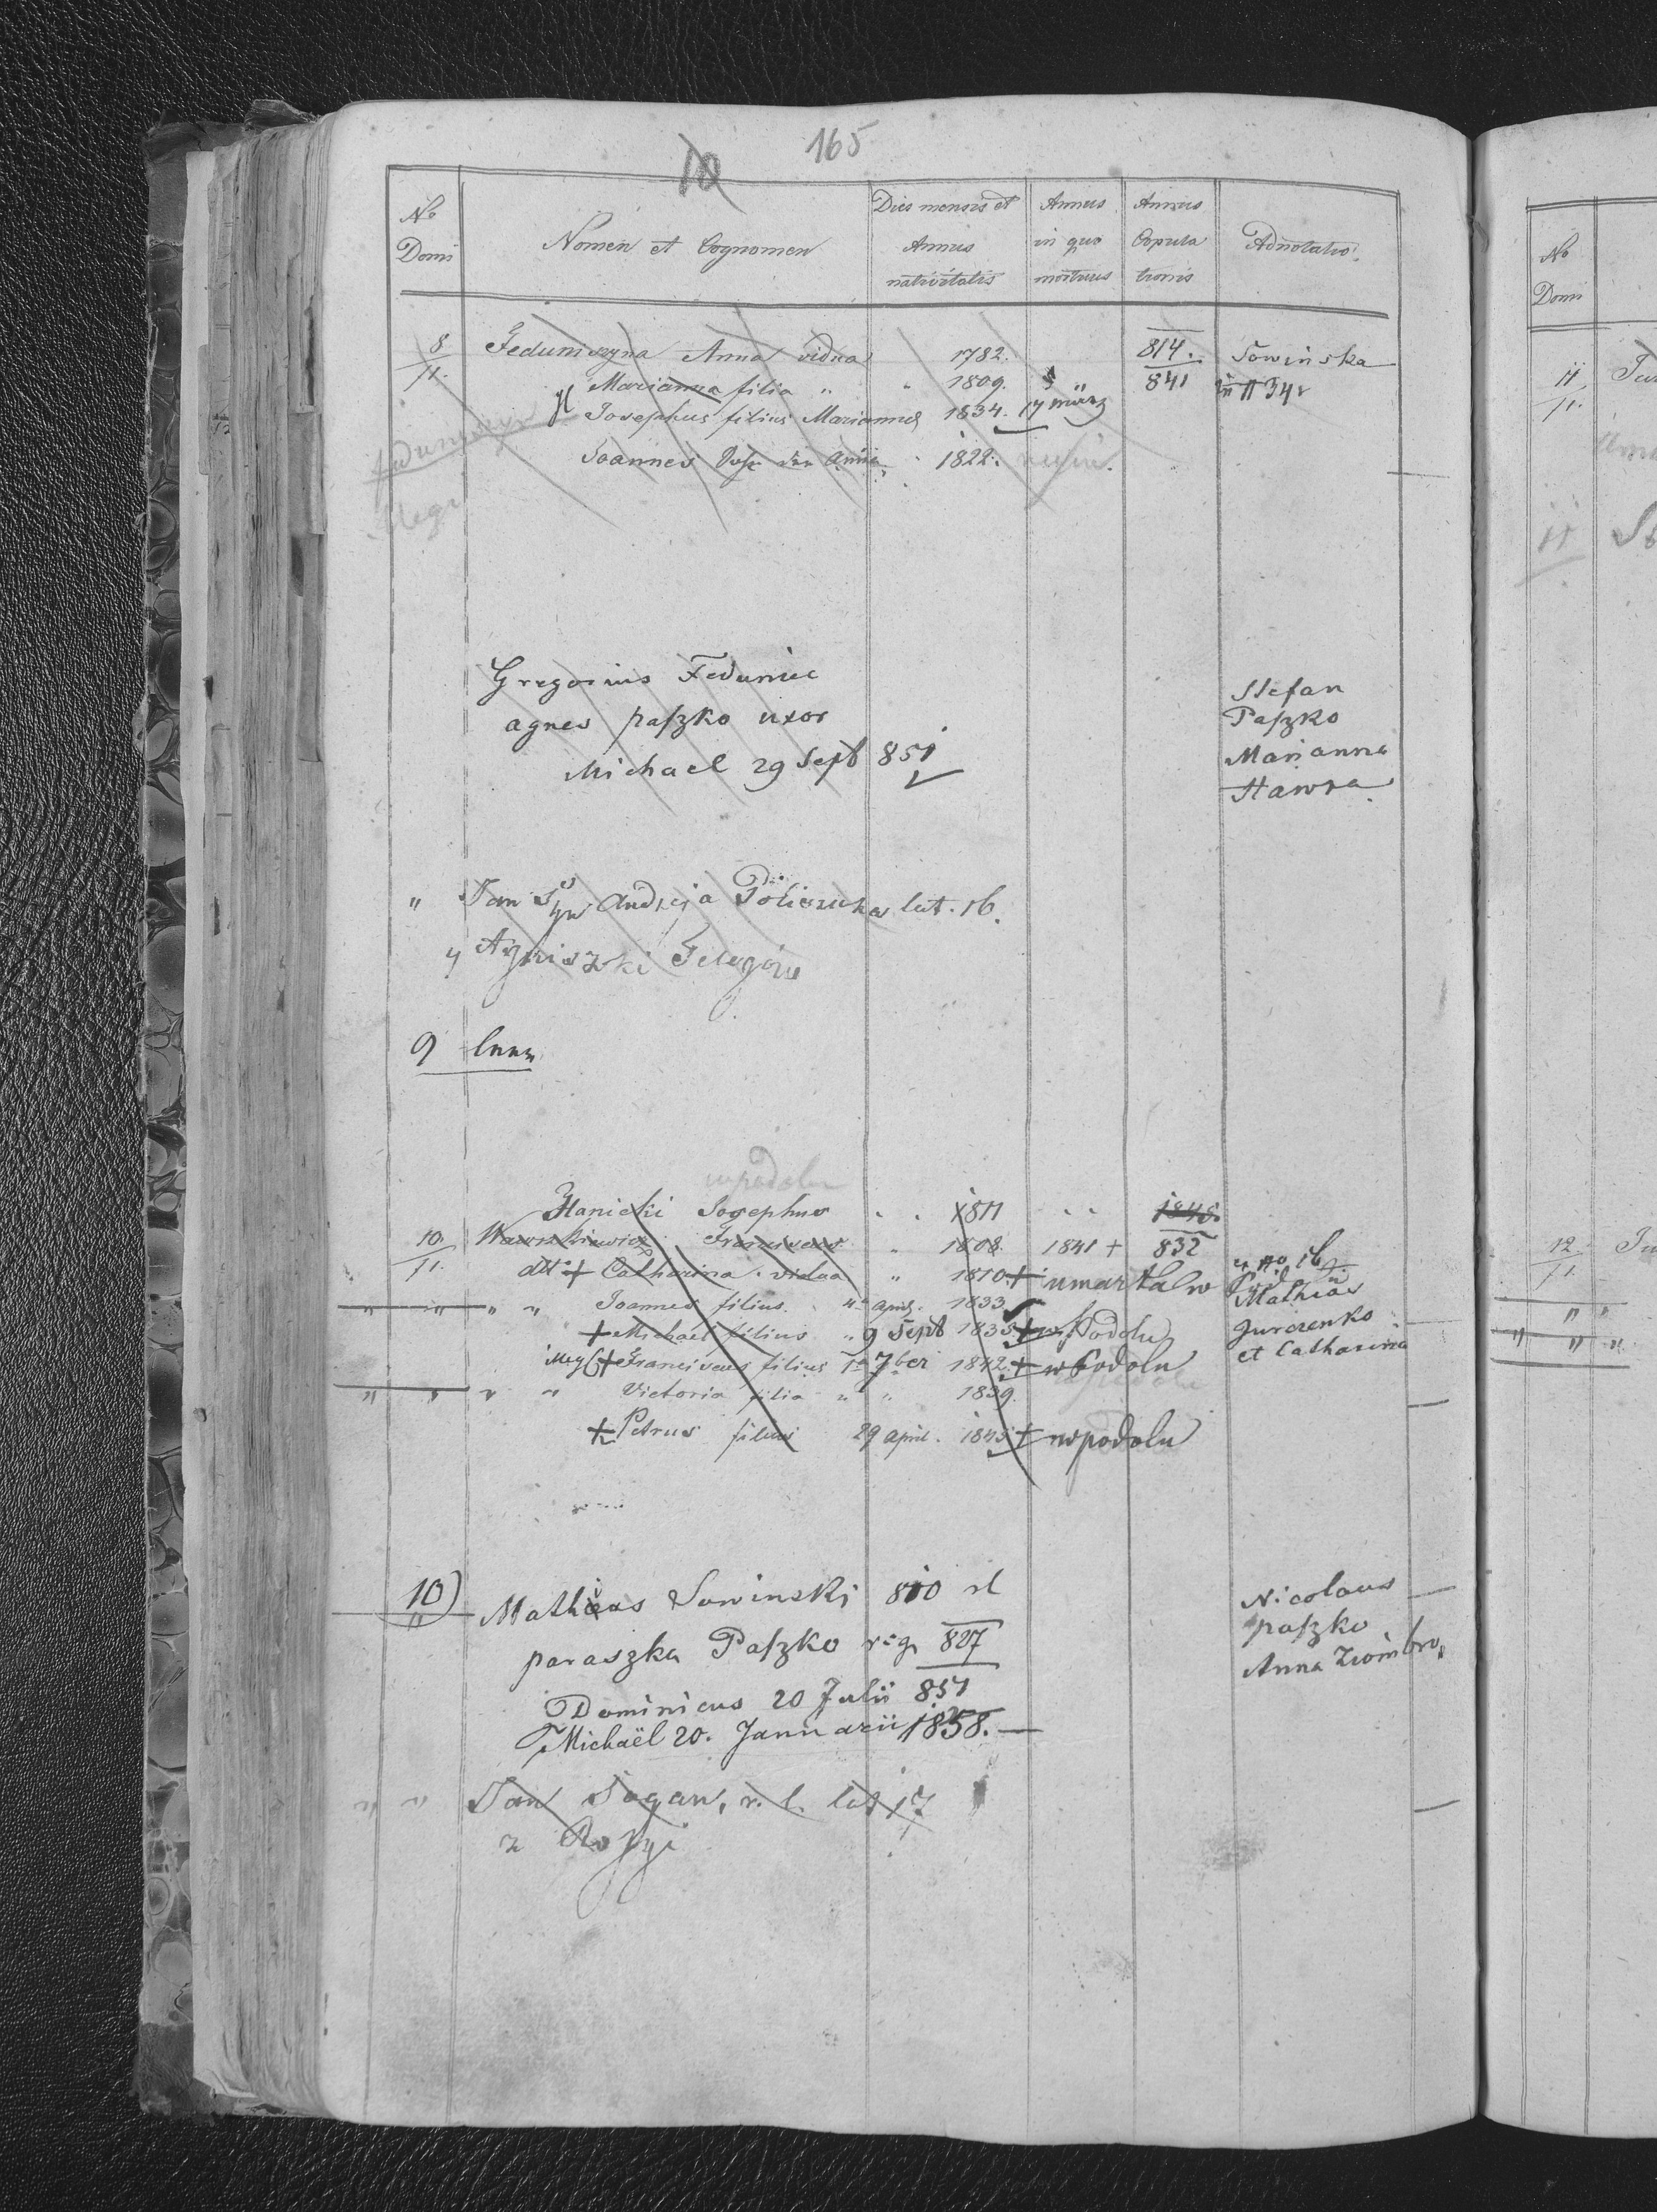 165
10
No Domi
Nomen et Cognomen
Dies mensis et Annus nativitatis
Annus in quo mortuus
Annus Copulationis
Adnotatio
8 Feduniszyna Anna vidua 1782. 814. Sowinska
11. Marianna filia " " 1809. 841 in N 34
Josephus filius Mariannae 1834. 17 März
Joannes 1822.
Gregorius Feduniec
agnes paszko uxor
Michael 29 Sept 851
Stefan
Paszko
Marianna
Hawra
" Jan Syn Andreja lat. 16.
y Agniszki
9
wpodolu
Hanicki Josephus . . 1811 . . 1848
10. Franciscus " 1808. 1841 + 832
11. dtto + Catharina vidua " 1810. + umarka w
" " " " Joannes filius. 4 april. 1833.
+ Michael filius " 9 Sept 1835 + w Podolu
+ Franciscus filius 1 7ber 1842. + w Podolu
" " " " Victoria filia " " 1839.
+ Petrus filius 29 april. 1845 + wpodolu
No 16
Mathias
Jurczenko
et Catharina
10) Mathias Sowinski 810 rl
" paraszka Paszko rg 827
Dominicus 20 Julii 851
Michaël 20. Januarii 1858. —
Nicolaus
paszko
Anna
" " Jan Sagan, r. l. lat 17
z Rossyi
No Domi
11
11.
11
12
11.